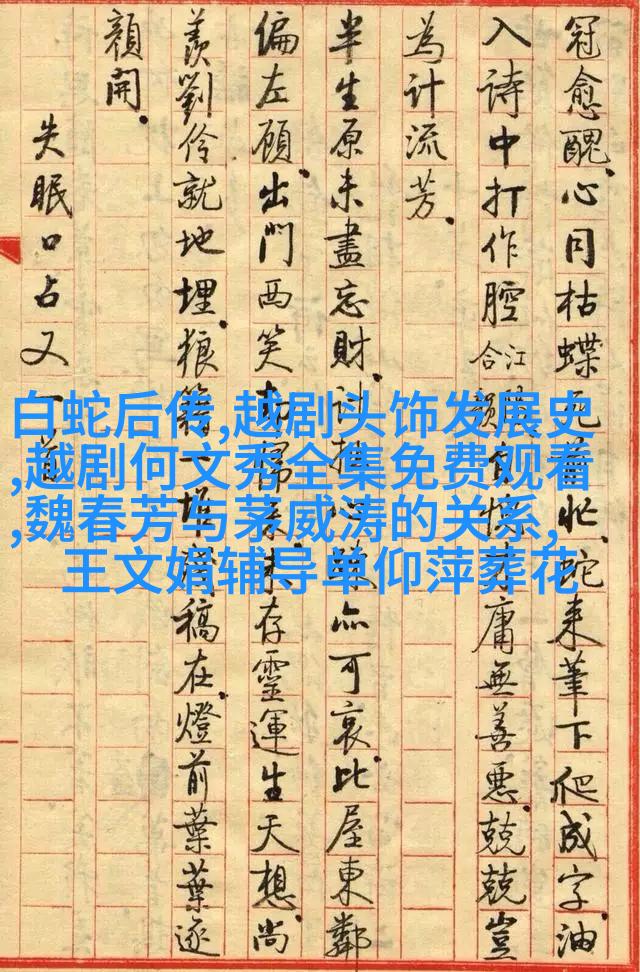 冠愈醜。心同枯蝶死忙、蛇来筆下爬成字。油
入诗中打作腔 合江 庸無善恶。兢兢豈
為计流芳。
半生原未盡忘財。计拙亦可哀。比屋東鄰
偏左顾。出門西笑未存靈運生天想。尚
羡劉伶就地埋。狼籍一堆稿在。燈前葉葉逐
顔開。
失眠口占又一首
白蛇后传,越剧头饰发展史
,越剧何文秀全集免费观看
,魏春芳与茅威涛的关系,
王文娟辅导单仰萍葬花